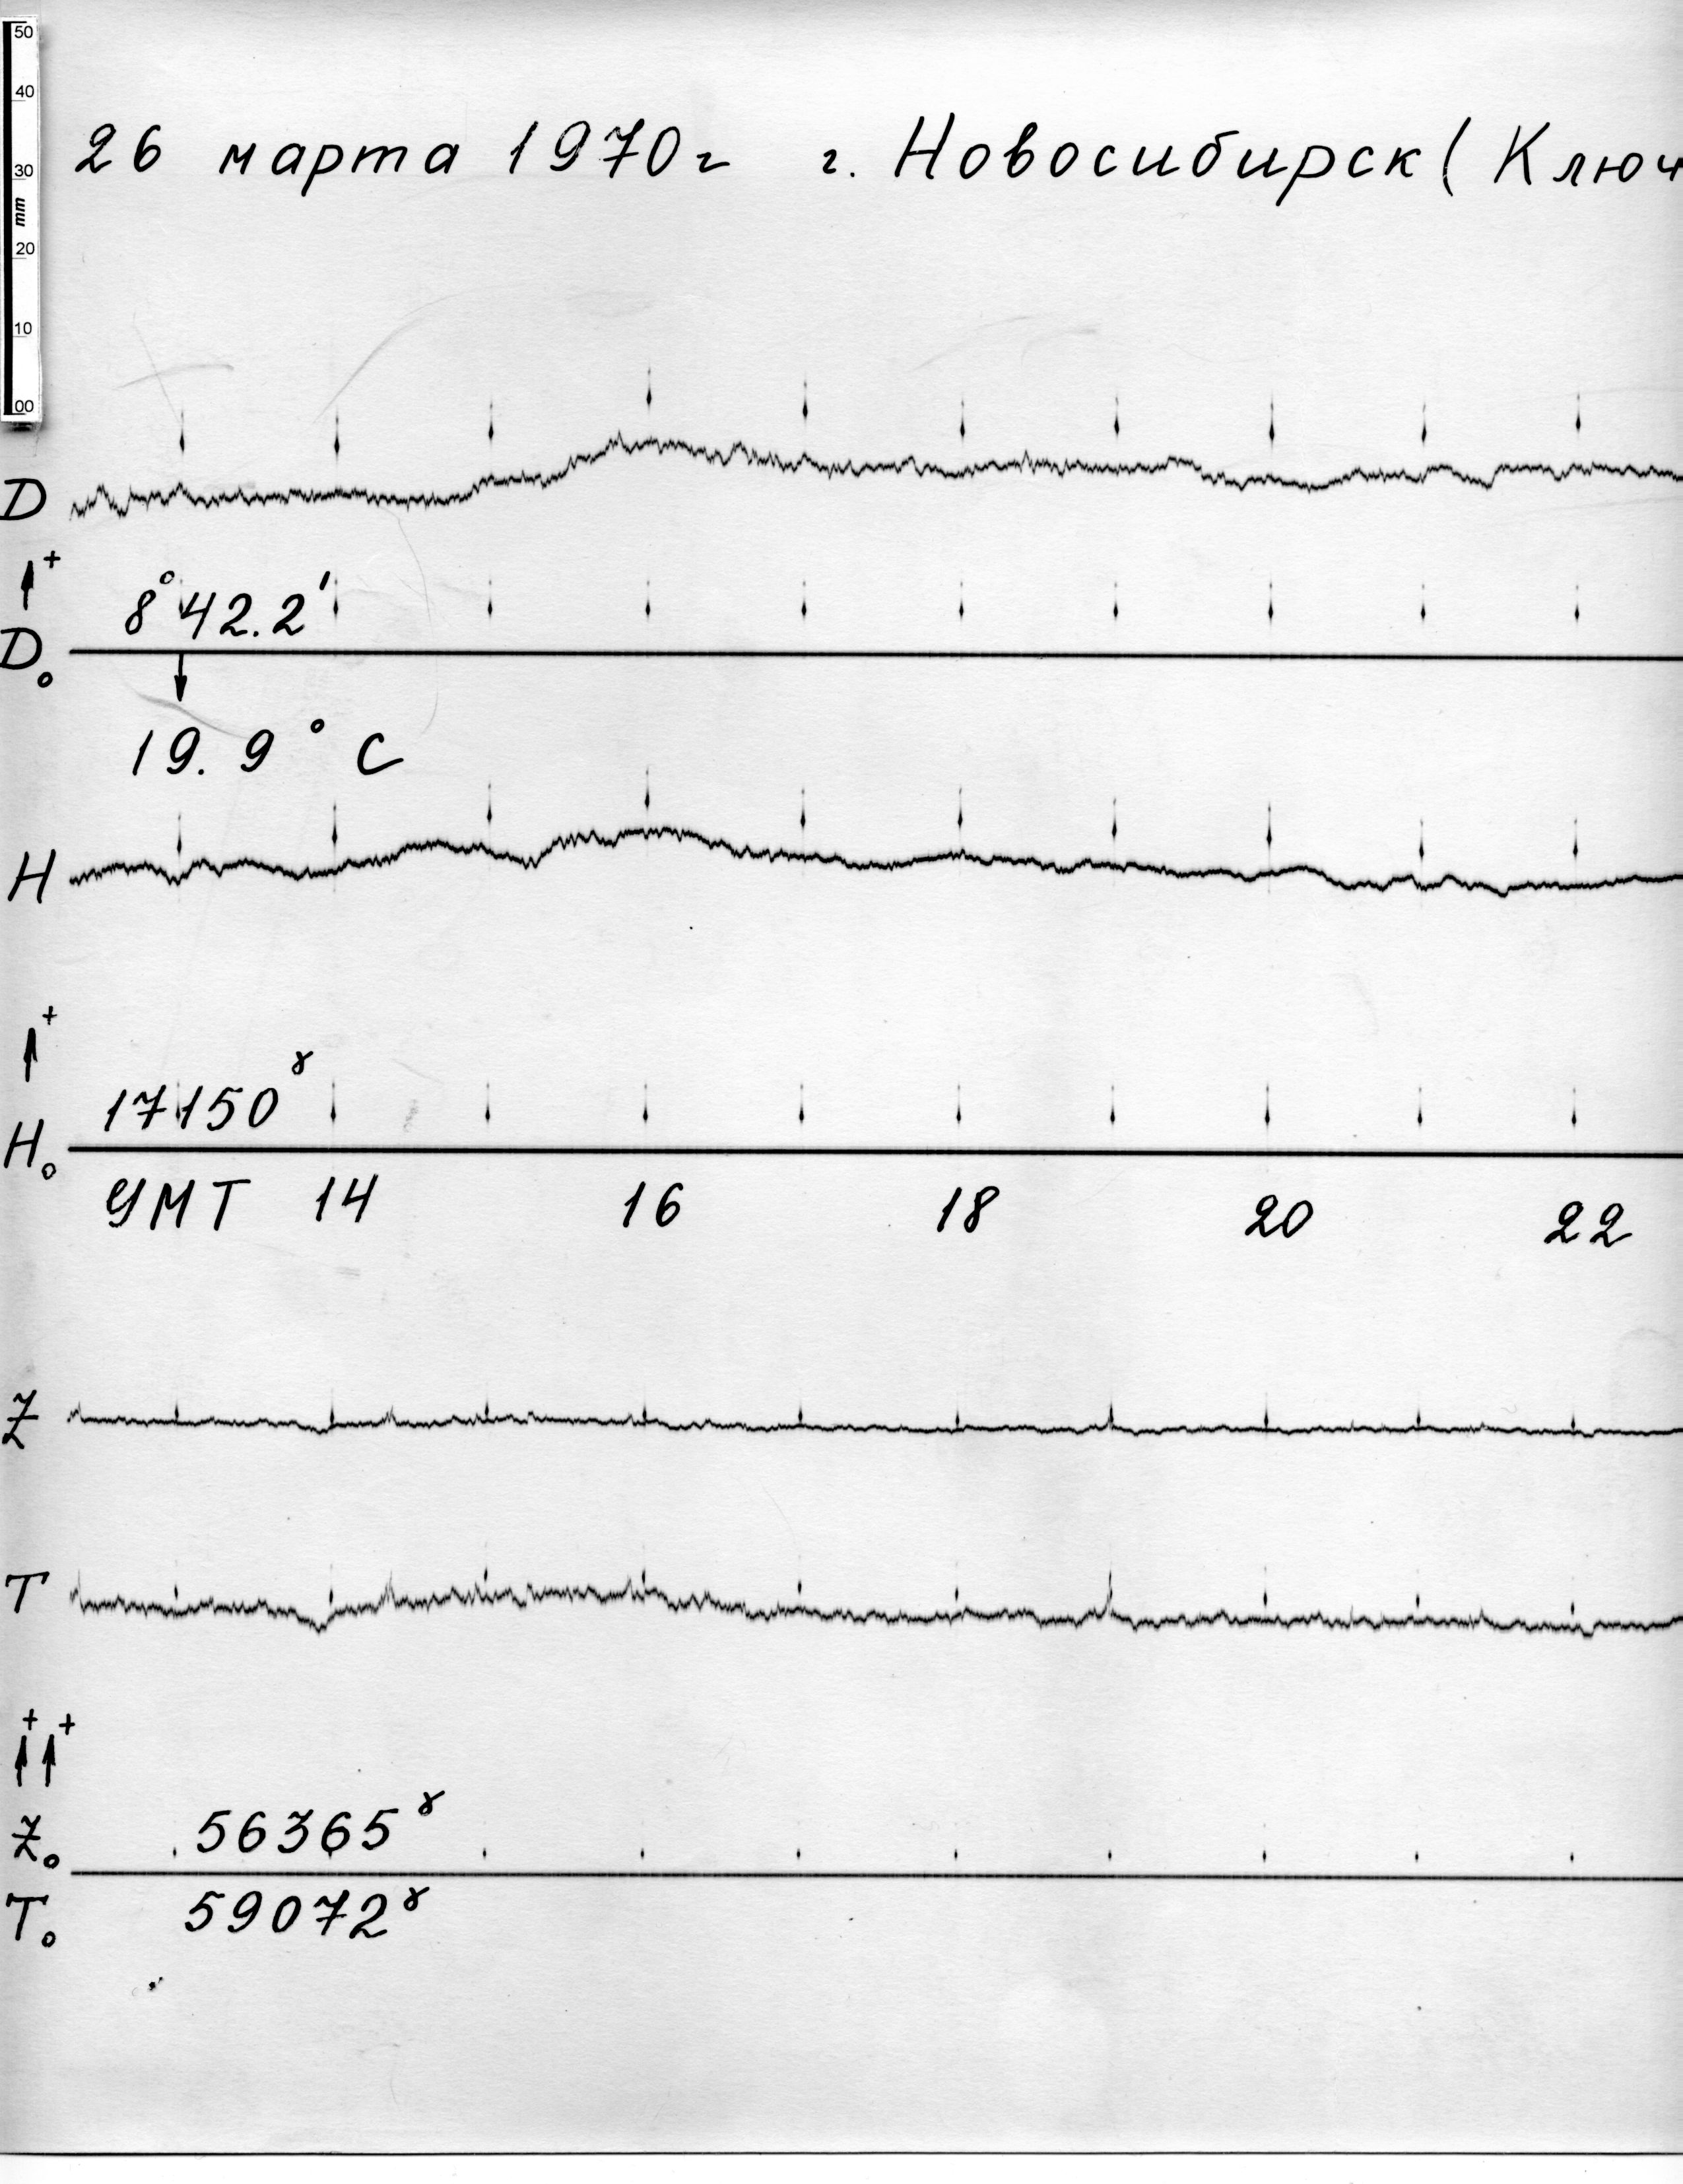 50
40
30
mm
20
10
00
26 марта 1970г г. Новосибирск (Ключ
D
+
8°42.2'
D₀
19.9°C
H
+
17150γ
H₀
УМТ 14 16 18 20 22
Z
T
+ +
Z₀ 56365γ
T₀ 59072γ